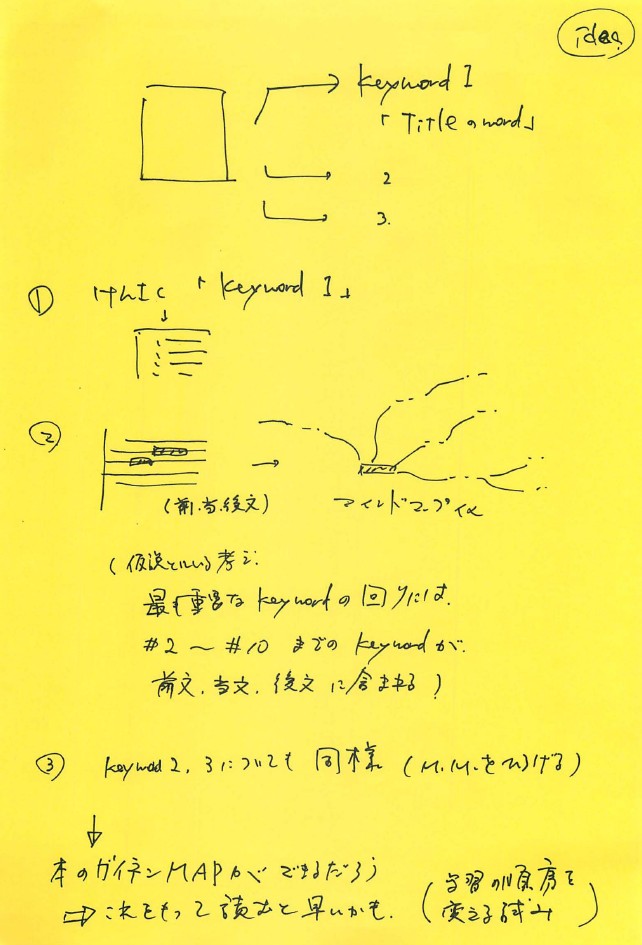 idea
keyword 1
「Titleのword」
2
3.
① けんさく 「keyword 1」
②
(前.当.後文)
マインドマップ化
(仮説という考え
最も重要なkeywordの回りには、
#2〜#10 までのkeywordが、
前文、当文、後文に含まれる)
③ keywod 2, 3についても 同様 (M.M.をひろげる)
本のガイネンMAPができるだろう
⇒これをもって読むと早いかも. (学習の順序を
変える試み)